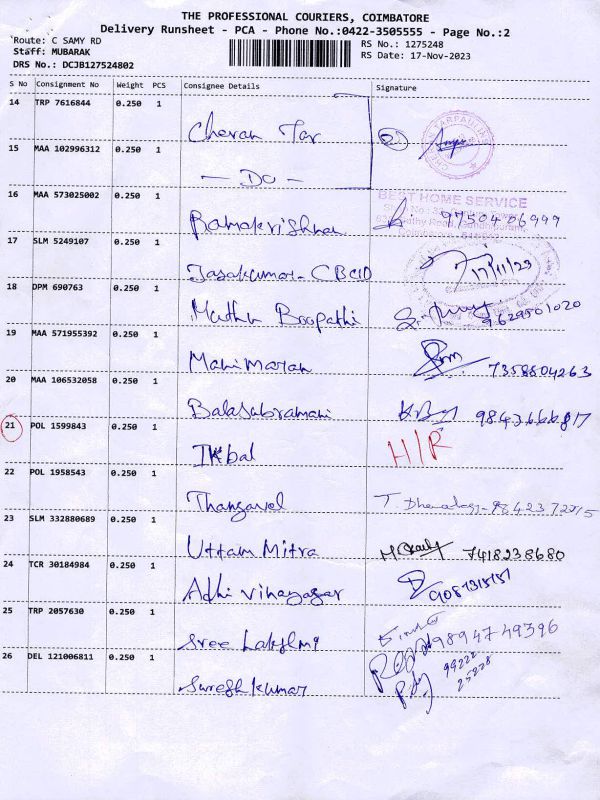 THE PROFESSIONAL COURIERS, COIMBATORE
Delivery Runsheet - PCA - Phone No.:0422-3505555 - Page No.:2
Route: C SAMY RD
Staff: MUBARAK
DRS No.: DCJB127524802
RS No.: 1275248
RS Date: 17-Nov-2023
S No Consignment No Weight PCS Consignee Details Signature
14 TRP 7616844 0.250 1
Cheran Tar
15 MAA 102996312 0.250 1
— DO —
16 MAA 573025002 0.250 1
BEST HOME SERVICE
Ramakrishnan 9750406999
17 SLM 5249107 0.250 1
Jasakumar - CBCID 17/11/23
18 DPM 690763 0.250 1
Muthu Boopathi 9629501020
19 MAA 571955392 0.250 1
Manimaran 7358804263
20 MAA 106532058 0.250 1
Balasubramani 9843666817
21 POL 1599843 0.250 1
Ikbal H/R
22 POL 1958543 0.250 1
Thangavel
23 SLM 332880689 0.250 1
Uttam Mitra 7418238680
24 TCR 30184984 0.250 1
Adhi vinayagar
25 TRP 2057630 0.250 1
Sree Lakshmi 9894749396
26 DEL 121006811 0.250 1
Sureshkumar 99222
25228